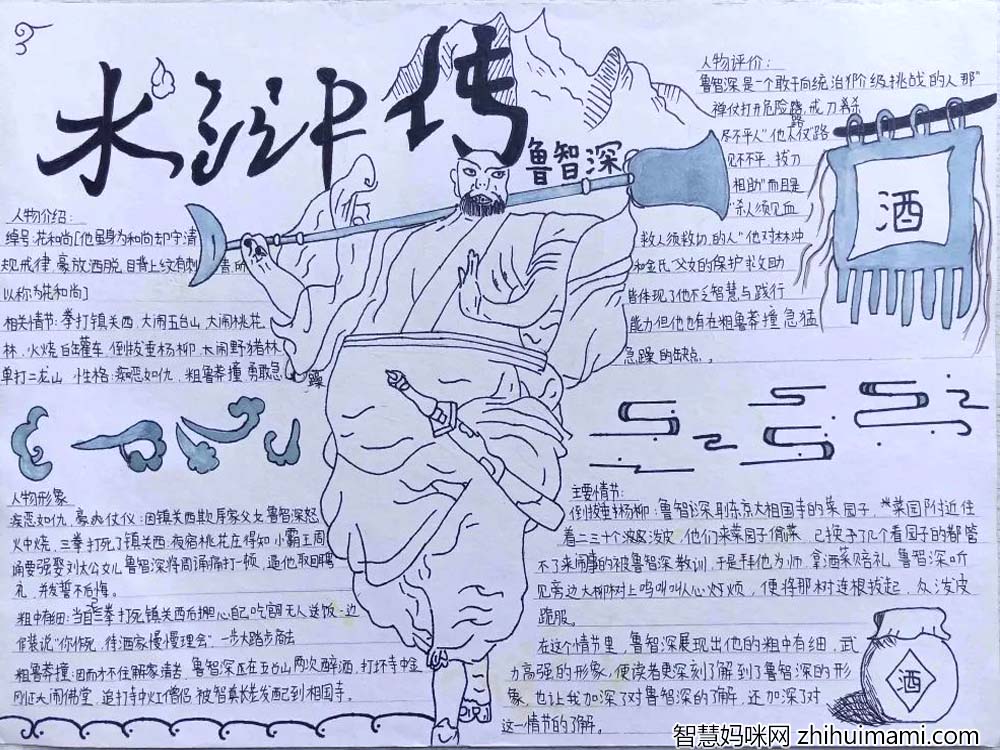 水浒传
鲁智深
人物介绍:
绰号:花和尚[他虽身为和尚却不守清
规戒律,豪放洒脱,因背上纹有刺青,所
以称为花和尚]
相关情节:拳打镇关西,大闹五台山,大闹桃花
林,火烧瓦罐车,倒拔垂杨柳,大闹野猪林
单打二龙山 性格:疾恶如仇,粗鲁莽撞,勇敢急躁
人物评价:
鲁智深是一个敢于向统治阶级挑战的人那"
禅仗打开危险路,戒刀杀
尽不平人"他又仗"路
见不平,拔刀
相助"而且是
"杀人须见血
救人须救切,的人"他对林冲
和金氏父女的保护求助
皆体现了他不乏智慧与践行
能力但他也有在粗鲁莽撞急猛
急躁的缺点。
酒
人物形象
疾恶如仇,豪爽仗仪:因镇关西欺辱家父女鲁智深怒
火中烧,三拳打死了镇关西.夜宿桃花在得知小霸王周
通要强娶刘太公女儿鲁智深将周通痛打一顿,逼他取回聘
礼,并发誓不后悔。
粗中有细:当自己三拳打死镇关西后担心自己吃官司无人送饭.边
佯装说"你诈死,待洒家慢慢理会",一步大踏步离去
粗鲁莽撞:因而不住解家清苦,鲁智深匹在五台山两次醉酒,打坏寺中金
刚正大闹佛堂,追打寺中火工僧侣 被智真长老发配到相国寺。
主要情节:
倒拔垂杨柳:鲁智深到东京大相国寺的菜园子,菜园附近住
着二三十个泼皮,他们来菜园子偷菜,已换了几个看园子的都管
不了来闹事的被鲁智深教训,于是拜他为师,拿酒菜赔礼,鲁智深听
见旁边大柳树上乌鸦叫人心烦,便将那树连根拔起,众泼皮
跪服。
在这个情节里,鲁智深展现出他的粗中有细,武
力高强的形象,使读者更深刻了解到了鲁智深的形
象,也让我加深了对鲁智深的了解,还加深了对
这一情节的了解。
酒
智慧妈咪网 zhihuimami.com